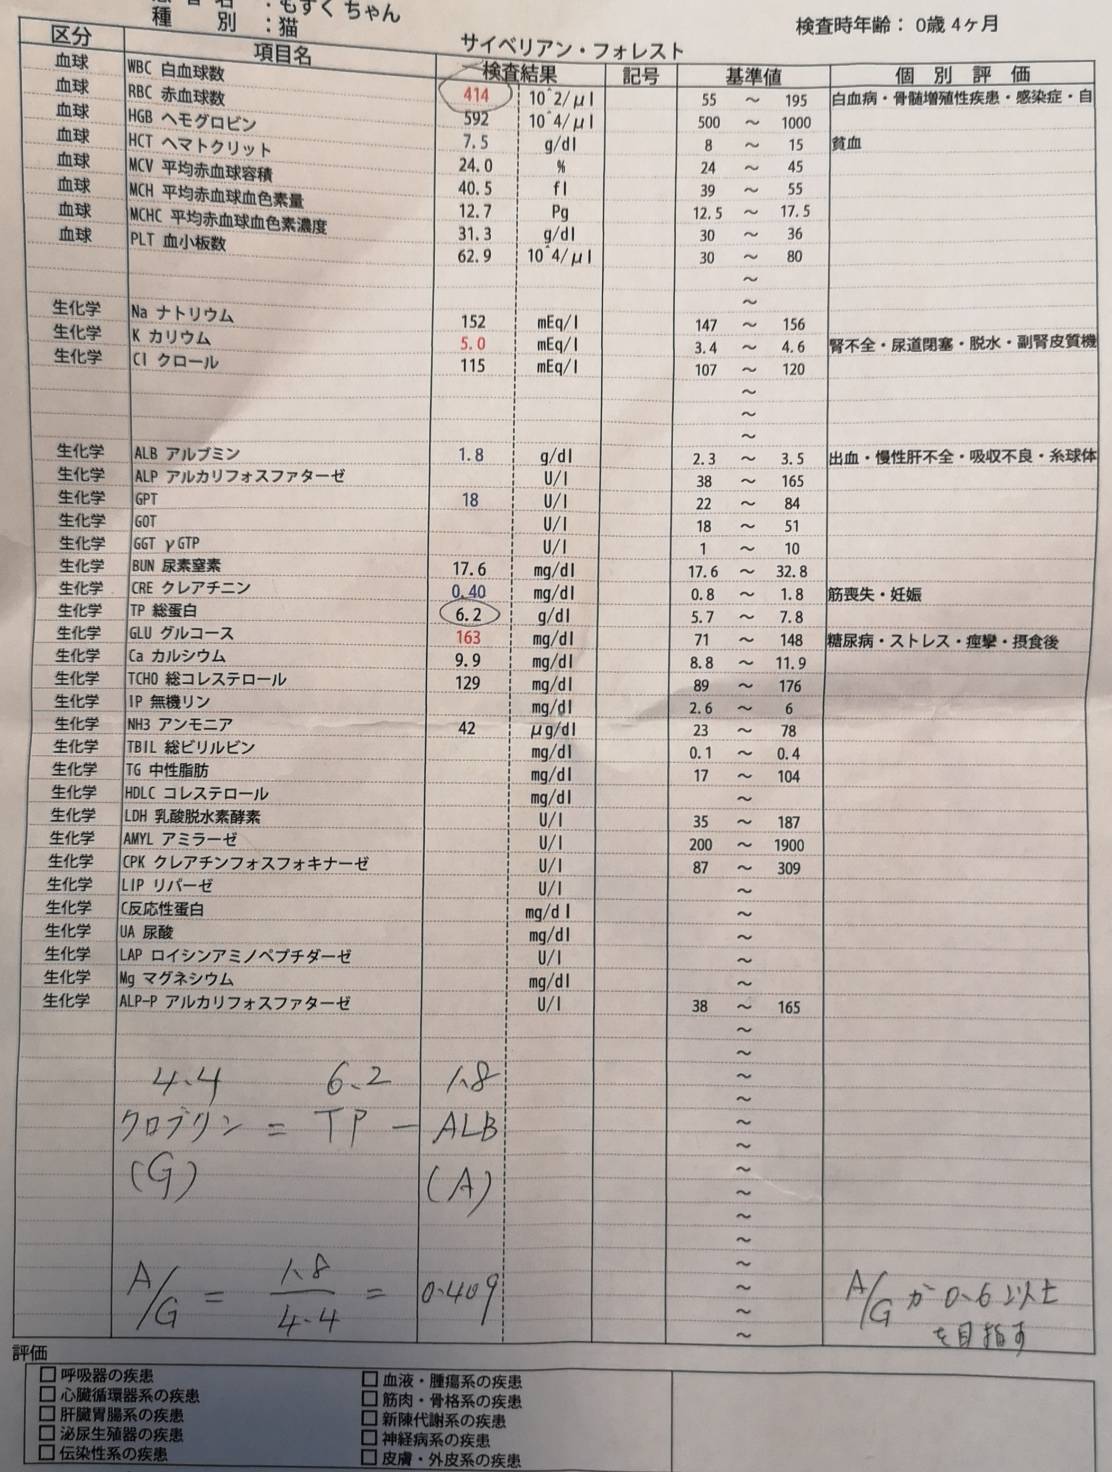 ：もずくちゃん
種 別 ：猫
検査時年齢： 0歳 4ヶ月
サイベリアン・フォレスト
区分 項目名 検査結果 記号 基準値 個別評価
血球 WBC 白血球数 414 10^2/μl 55 ～ 195 白血病・骨髄増殖性疾患・感染症・自
血球 RBC 赤血球数 592 10^4/μl 500 ～ 1000
血球 HGB ヘモグロビン 7.5 g/dl 8 ～ 15 貧血
血球 HCT ヘマトクリット 24.0 % 24 ～ 45
血球 MCV 平均赤血球容積 40.5 fl 39 ～ 55
血球 MCH 平均赤血球血色素量 12.7 Pg 12.5 ～ 17.5
血球 MCHC 平均赤血球血色素濃度 31.3 g/dl 30 ～ 36
血球 PLT 血小板数 62.9 10^4/μl 30 ～ 80
～
～
生化学 Na ナトリウム 152 mEq/l 147 ～ 156
生化学 K カリウム 5.0 mEq/l 3.4 ～ 4.6 腎不全・尿道閉塞・脱水・副腎皮質機
生化学 Cl クロール 115 mEq/l 107 ～ 120
～
～
～
生化学 ALB アルブミン 1.8 g/dl 2.3 ～ 3.5 出血・慢性肝不全・吸収不良・糸球体
生化学 ALP アルカリフォスファターゼ U/l 38 ～ 165
生化学 GPT 18 U/l 22 ～ 84
生化学 GOT U/l 18 ～ 51
生化学 GGT γGTP U/l 1 ～ 10
生化学 BUN 尿素窒素 17.6 mg/dl 17.6 ～ 32.8
生化学 CRE クレアチニン 0.40 mg/dl 0.8 ～ 1.8 筋喪失・妊娠
生化学 TP 総蛋白 6.2 g/dl 5.7 ～ 7.8
生化学 GLU グルコース 163 mg/dl 71 ～ 148 糖尿病・ストレス・痙攣・摂食後
生化学 Ca カルシウム 9.9 mg/dl 8.8 ～ 11.9
生化学 TCHO 総コレステロール 129 mg/dl 89 ～ 176
生化学 IP 無機リン mg/dl 2.6 ～ 6
生化学 NH3 アンモニア 42 μg/dl 23 ～ 78
生化学 TBIL 総ビリルビン mg/dl 0.1 ～ 0.4
生化学 TG 中性脂肪 mg/dl 17 ～ 104
生化学 HDLC コレステロール mg/dl ～
生化学 LDH 乳酸脱水素酵素 U/l 35 ～ 187
生化学 AMYL アミラーゼ U/l 200 ～ 1900
生化学 CPK クレアチンフォスフォキナーゼ U/l 87 ～ 309
生化学 LIP リパーゼ U/l ～
生化学 C反応性蛋白 mg/dl ～
生化学 UA 尿酸 mg/dl ～
生化学 LAP ロイシンアミノペプチダーゼ U/l ～
生化学 Mg マグネシウム mg/dl ～
生化学 ALP-P アルカリフォスファターゼ U/l 38 ～ 165
～
～
4.4 6.2 1.8 ～
～
クロブリン = TP - ALB ～
～
(G) (A) ～
～
～
～
～
A/G = 1.8/4.4 = 0.409 ～
A/Gが0.6以上
を目指す
～
～
評価
□ 呼吸器の疾患 □ 血液・腫瘍系の疾患
□ 心臓循環器系の疾患 □ 筋肉・骨格系の疾患
□ 肝臓胃腸系の疾患 □ 新陳代謝系の疾患
□ 泌尿生殖器の疾患 □ 神経病系の疾患
□ 伝染性系の疾患 □ 皮膚・外皮系の疾患